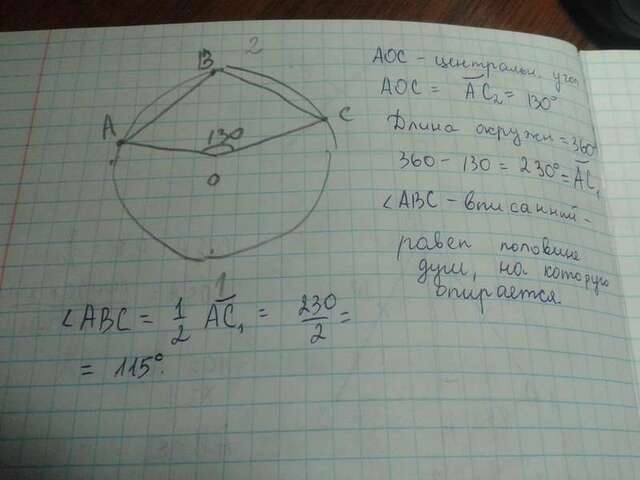 B
2
A
C
130
O
1
AOC - центральн. угол
AOC = AC₂ = 130°
Длина окружн = 360°
360 - 130 = 230° = AC₁
∠ABC - вписанный -
равен половине
дуги, на которую
опирается
∠ABC = 1/2 AC₁ = 230/2 =
= 115°.